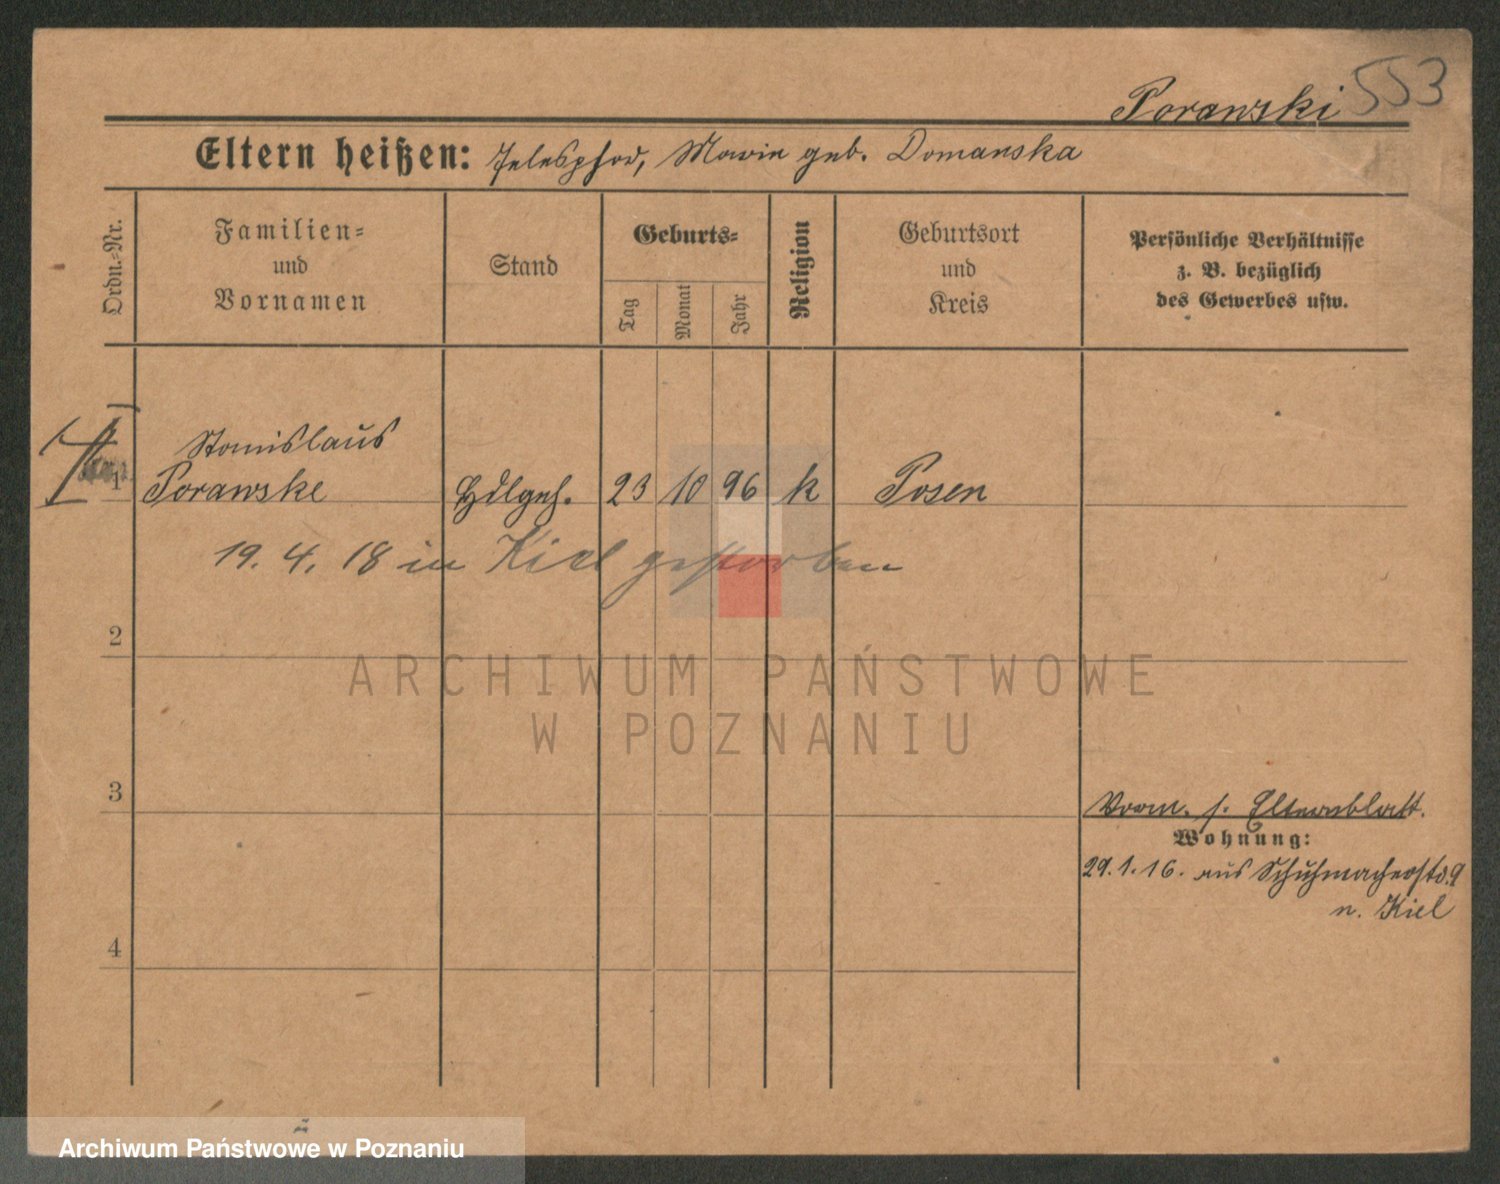 Porawski 553
Eltern heißen: Telesphor, Marie geb. Domanska
Ordn.-Nr.
Familien-
und
Vornamen
Stand
Geburts-
Tag
Monat
Jahr
Religion
Geburtsort
und
Kreis
Persönliche Verhältnisse
z. B. bezüglich
des Gewerbes usw.
Stanislaus
1 Porawske Hdlgeh. 23 10 96 k Posen
19. 4. 18 in Kiel gestorben
2
ARCHIWUM PAŃSTWOWE
W POZNANIU
3
Vorm. s. Elternblatt.
Wohnung:
29.1.16. aus Schuhmacherstr. 9
n. Kiel
4
Archiwum Państwowe w Poznaniu